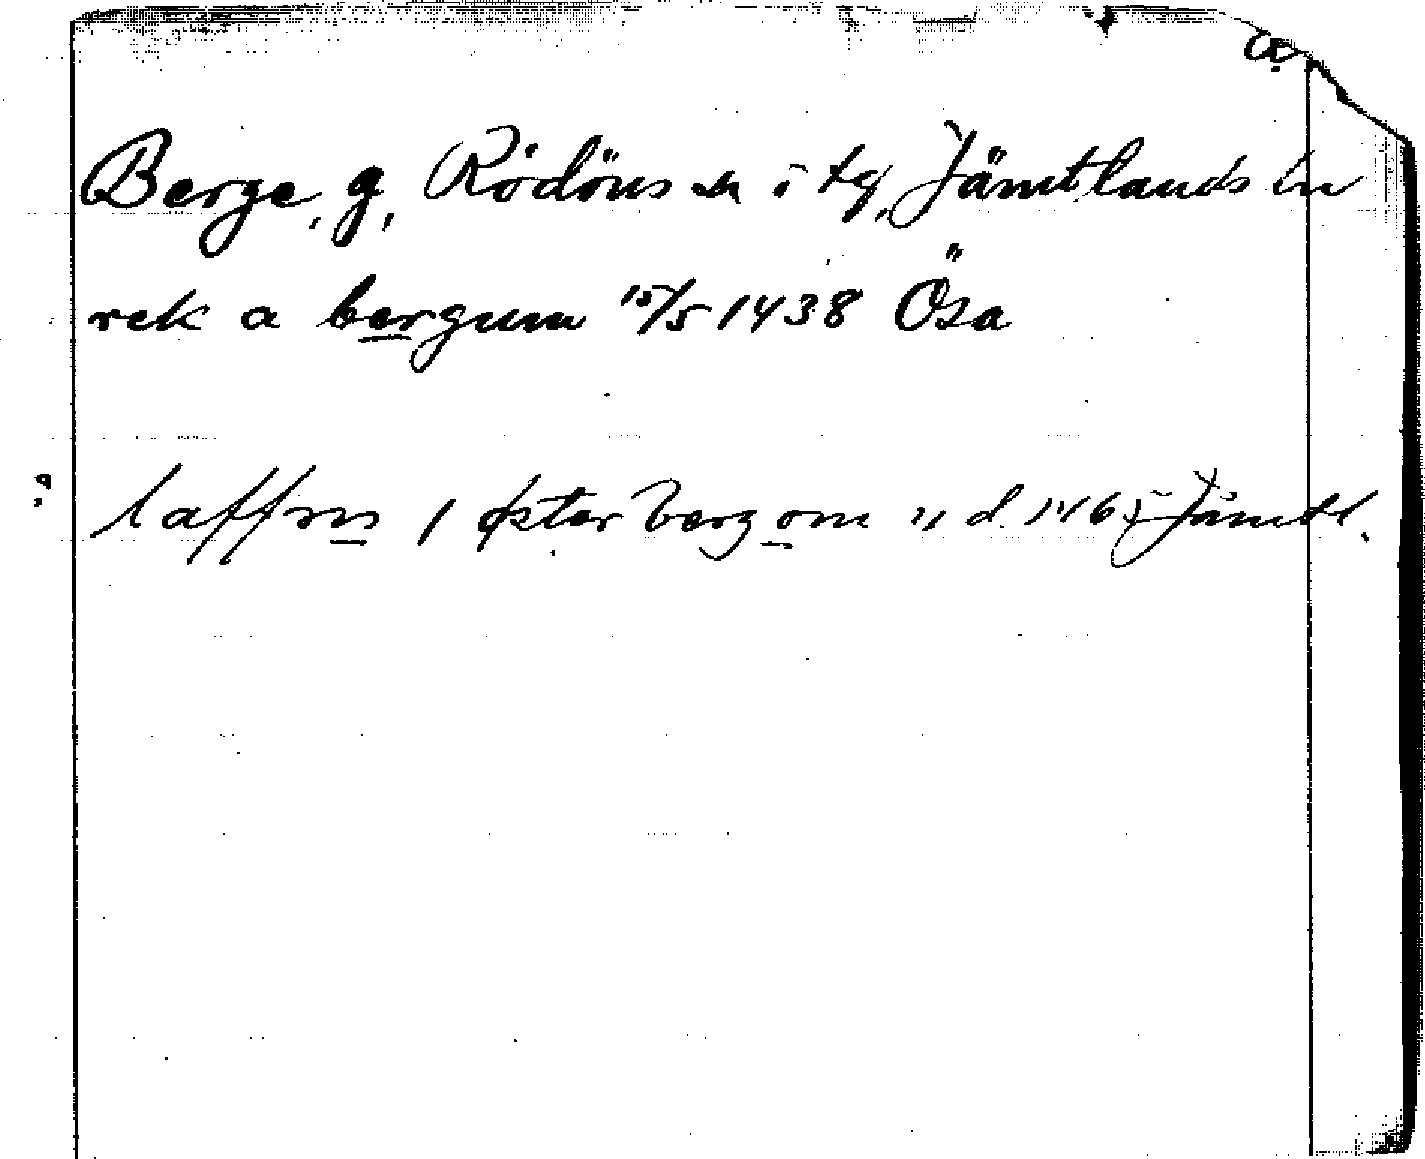 Berge, g, Rödöns sn i tg, Jämtlands ln
rek a bergum 15/5 1438 Ösa
laffris j øster berg om u d. 1465 Jämtl.